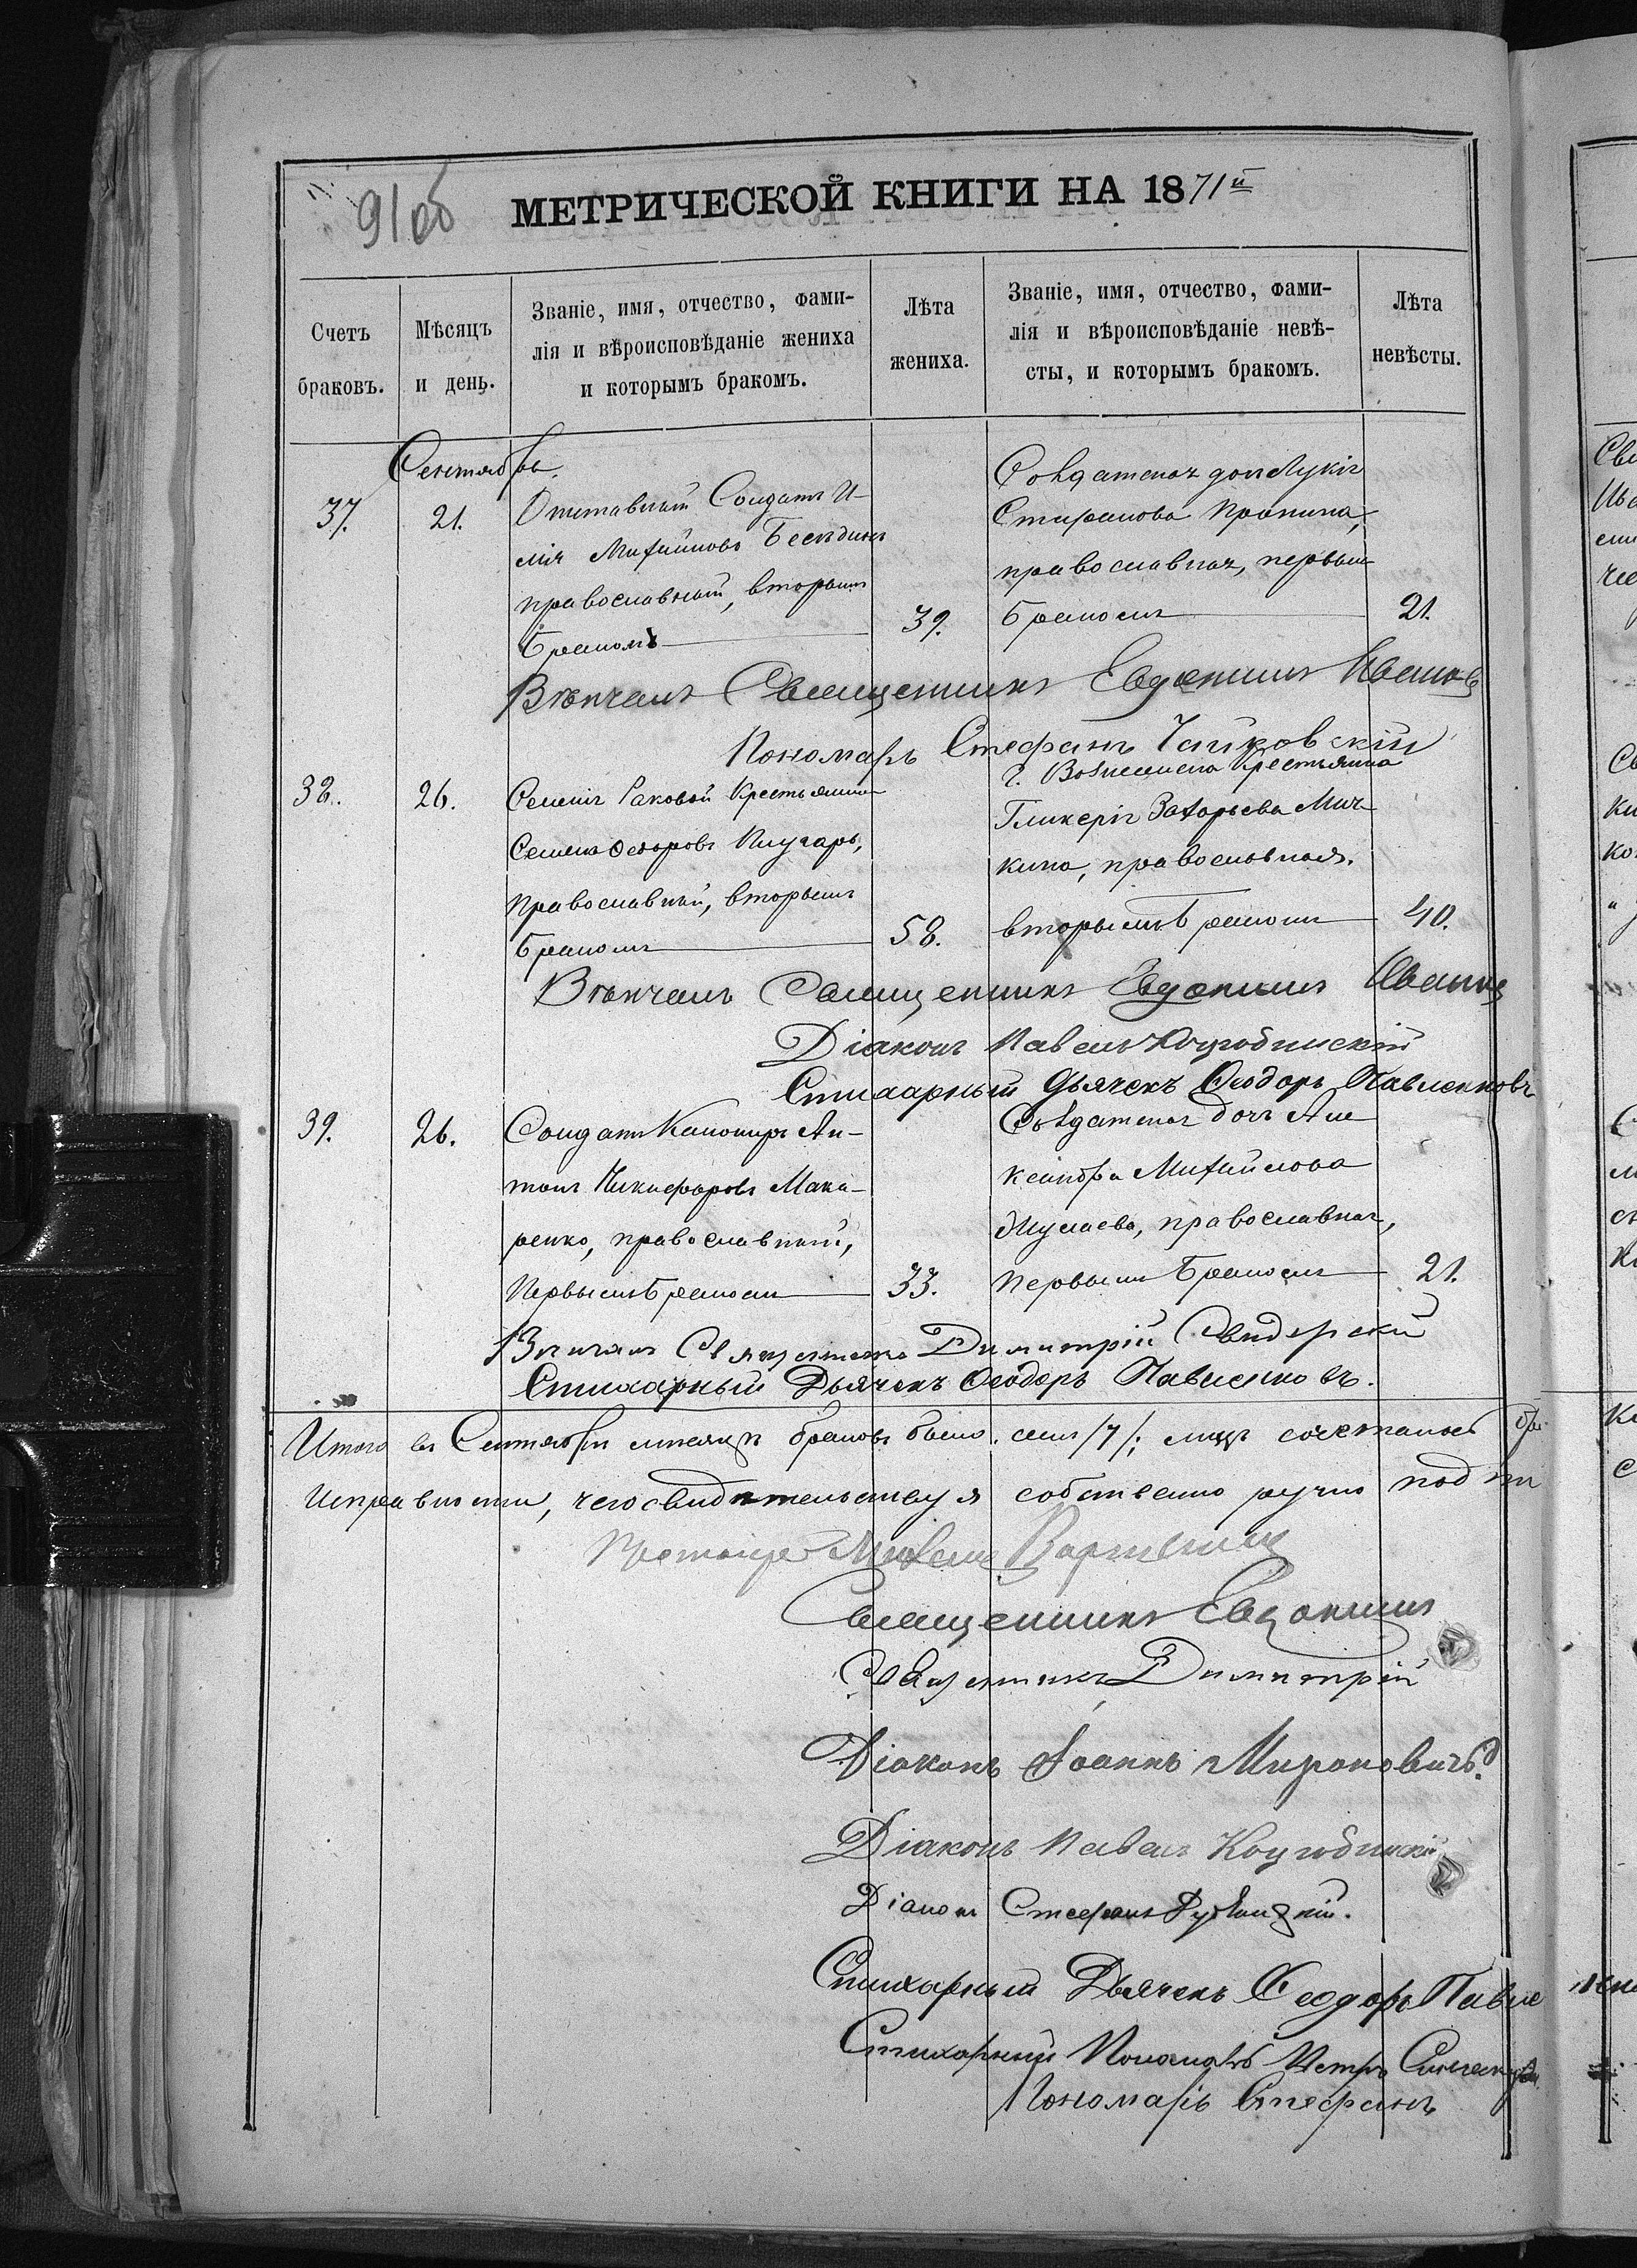 91об
МЕТРИЧЕСКОЙ КНИГИ НА 1871й
Счетъ браковъ.
Мѣсяцъ и день.
Званіе, имя, отчество, фами-
лія и вѣроисповѣданіе жениха
и которымъ бракомъ.
Лѣта жениха.
Званіе, имя, отчество, фами-
лія и вѣроисповѣданіе невѣ-
сты, и которымъ бракомъ.
Лѣта невѣсты.
Сентябрь.
37.
21.
Отставный Солдатъ И-
лія Михайловъ Бесѣдинъ
православный, вторымъ
бракомъ
39.
Солдатская дочь Лукія
Стефанова Пронина,
православная, первымъ
бракомъ
21.
Вѣнчалъ Священникъ Евдокимъ Ивановъ
Пономарь Стефанъ Чайковскій
38.
26.
Селенія Раковой Крестьянинъ
Семенъ Ѳеодоровъ Плугарь,
православный, вторымъ
бракомъ
58.
г. Вознесенска Крестьянка
Гликерія Захарьева Мич-
кина, православная.
вторымъ бракомъ
40.
Вѣнчалъ Священникъ Евдокимъ Ивановъ
Діаконъ Павелъ Коцюбинскій
Стихарный Дьячекъ Ѳеодоръ Павленковъ
39.
26.
Солдатъ Канониръ Ан-
тонъ Никифоровъ Мака-
ренко, православный,
первымъ бракомъ
33.
Солдатская дочь Але
ксандра Михайлова
православная,
первымъ бракомъ
21.
Вѣнчалъ Священникъ Димитрій Свидерскій
Стихарный Дьячекъ Ѳеодоръ Павленковъ.
Итого въ Сентябрѣ мѣсяцѣ браковъ было семь /7/; лицъ сочеталось бра
Исправности, чего свидѣтельствуя собственно ручно подпи
Протоіерей Михаилъ
Священникъ Евдокимъ
Священникъ Димитрій
Діаконъ Іоаннъ Мироновичъ
Діаконъ Павелъ Коцюбинскій
Діаконъ Стефанъ
Стихарный Дьячекъ Ѳеодоръ Павле
Стихарный Пономарь Петръ
Пономарь Стефанъ